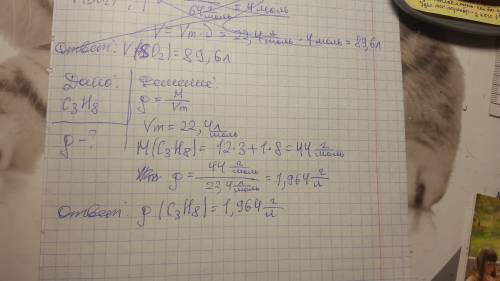 64 г/моль = 4 моль
V = Vm · υ = 22,4 л/моль · 4 моль = 89,6 л
Ответ: V(SO₂) = 89,6 л
Дано: Решение:
C₃H₈ ρ = M/Vm
ρ - ? Vm = 22,4 л/моль
M(C₃H₈) = 12·3 + 1·8 = 44 г/моль
ρ = 44 г/моль / 22,4 л/моль = 1,964 г/л
Ответ: ρ(C₃H₈) = 1,964 г/л